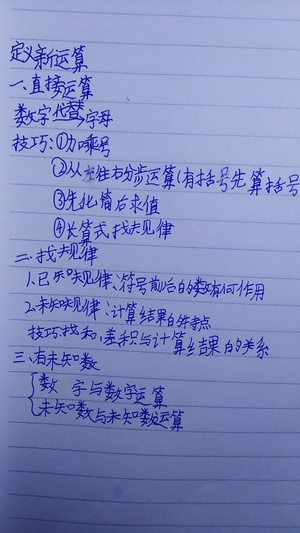 定义新运算
一、直接运算
数字代替字母
技巧:①加乘号
②从左往右分步运算(有括号先算括号
③先化简后求值
④长算式找规律
二、找规律
1.已知规律:符号前后的数有何作用
2.未知规律:计算结果的特点
技巧:找和、差积与计算结果的关系
三、有未知数
数字与数字运算
未知数与未知数运算